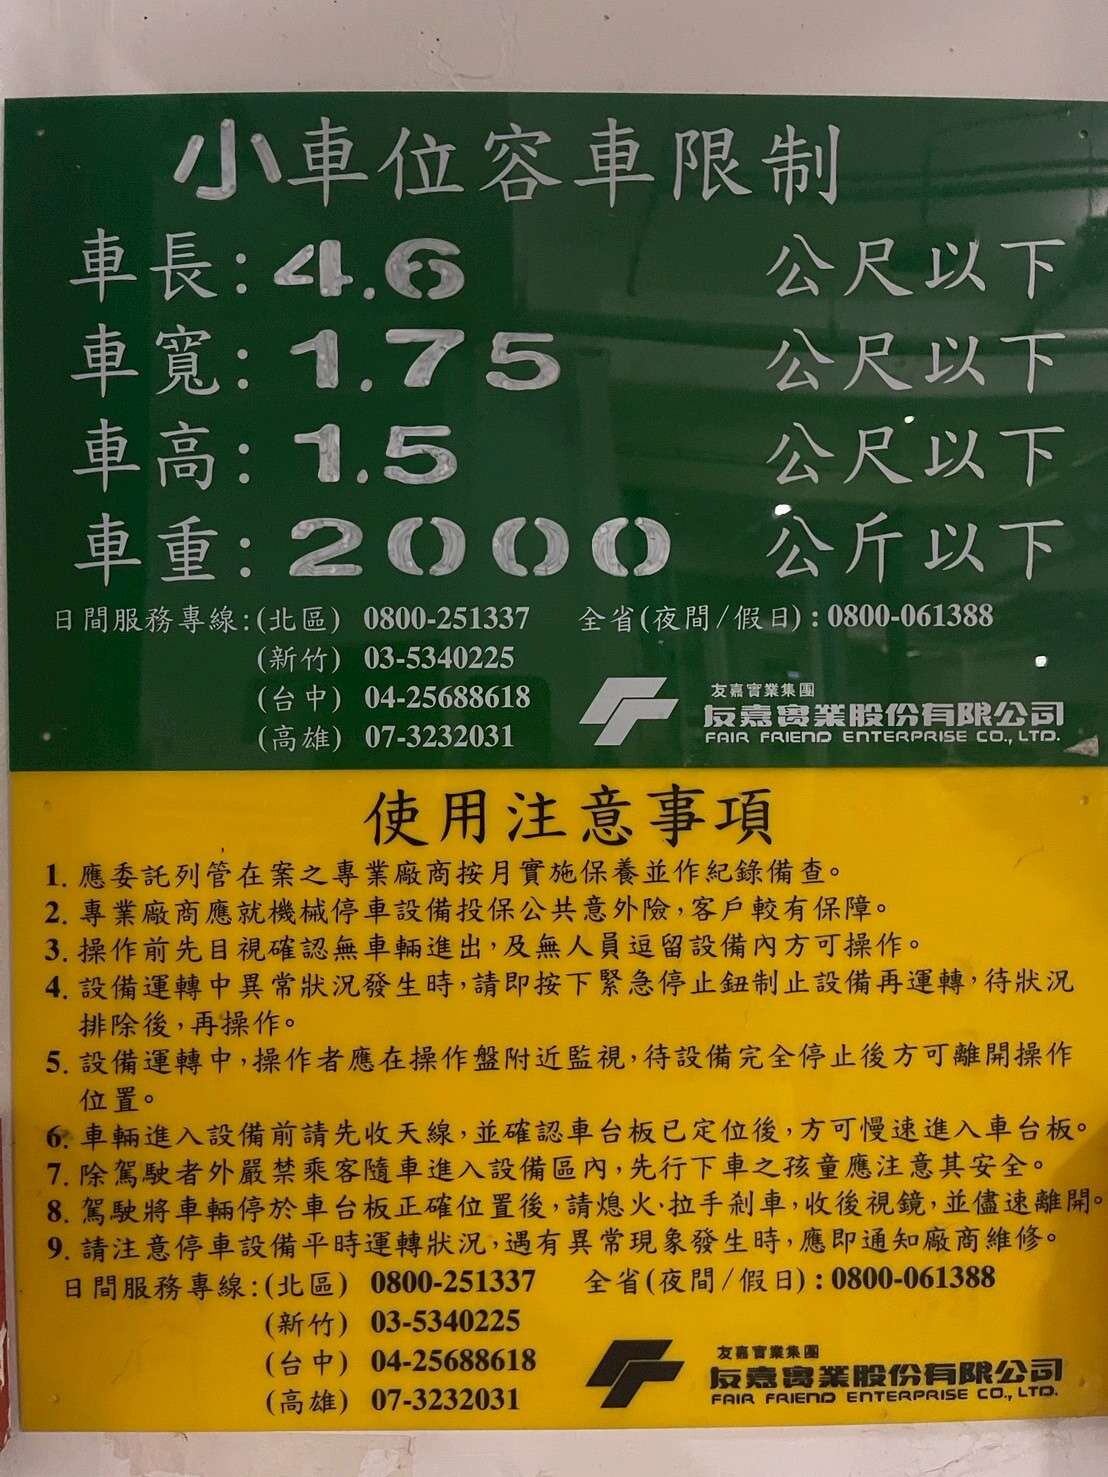 小車位容車限制
車長:4.6 公尺以下
車寬:1.75 公尺以下
車高:1.5 公尺以下
車重:2000 公斤以下
日間服務專線:(北區) 0800-251337 全省(夜間/假日):0800-061388
(新竹) 03-5340225
(台中) 04-25688618
(高雄) 07-3232031
友嘉實業集團
友嘉實業股份有限公司
FAIR FRIEND ENTERPRISE CO., LTD.
使用注意事項
1. 應委託列管在案之專業廠商按月實施保養並作紀錄備查。
2. 專業廠商應就機械停車設備投保公共意外險,客戶較有保障。
3. 操作前先目視確認無車輛進出,及無人員逗留設備內方可操作。
4. 設備運轉中異常狀況發生時,請即按下緊急停止鈕制止設備再運轉,待狀況
排除後,再操作。
5. 設備運轉中,操作者應在操作盤附近監視,待設備完全停止後方可離開操作
位置。
6. 車輛進入設備前請先收天線,並確認車台板已定位後,方可慢速進入車台板。
7. 除駕駛者外嚴禁乘客隨車進入設備區內,先行下車之孩童應注意其安全。
8. 駕駛將車輛停於車台板正確位置後,請熄火·拉手剎車,收後視鏡,並儘速離開。
9. 請注意停車設備平時運轉狀況,遇有異常現象發生時,應即通知廠商維修。
日間服務專線:(北區) 0800-251337 全省(夜間/假日):0800-061388
(新竹) 03-5340225
(台中) 04-25688618
(高雄) 07-3232031
友嘉實業集團
友嘉實業股份有限公司
FAIR FRIEND ENTERPRISE CO., LTD.